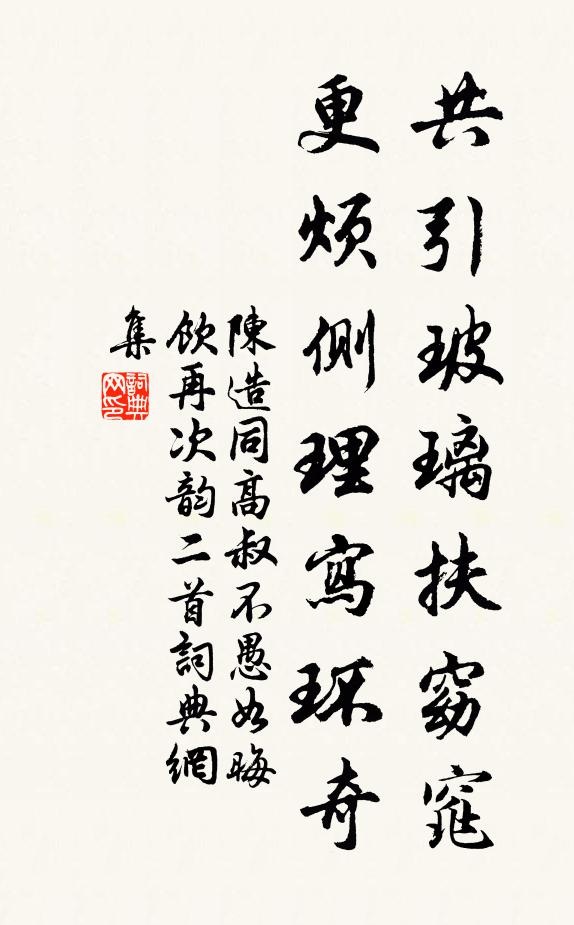 共引玻璃扶窈窕
更煩側理寫環奇
陳造同高叔不愚如晦
飲再次韵二首詞典網
集
詞典
网印